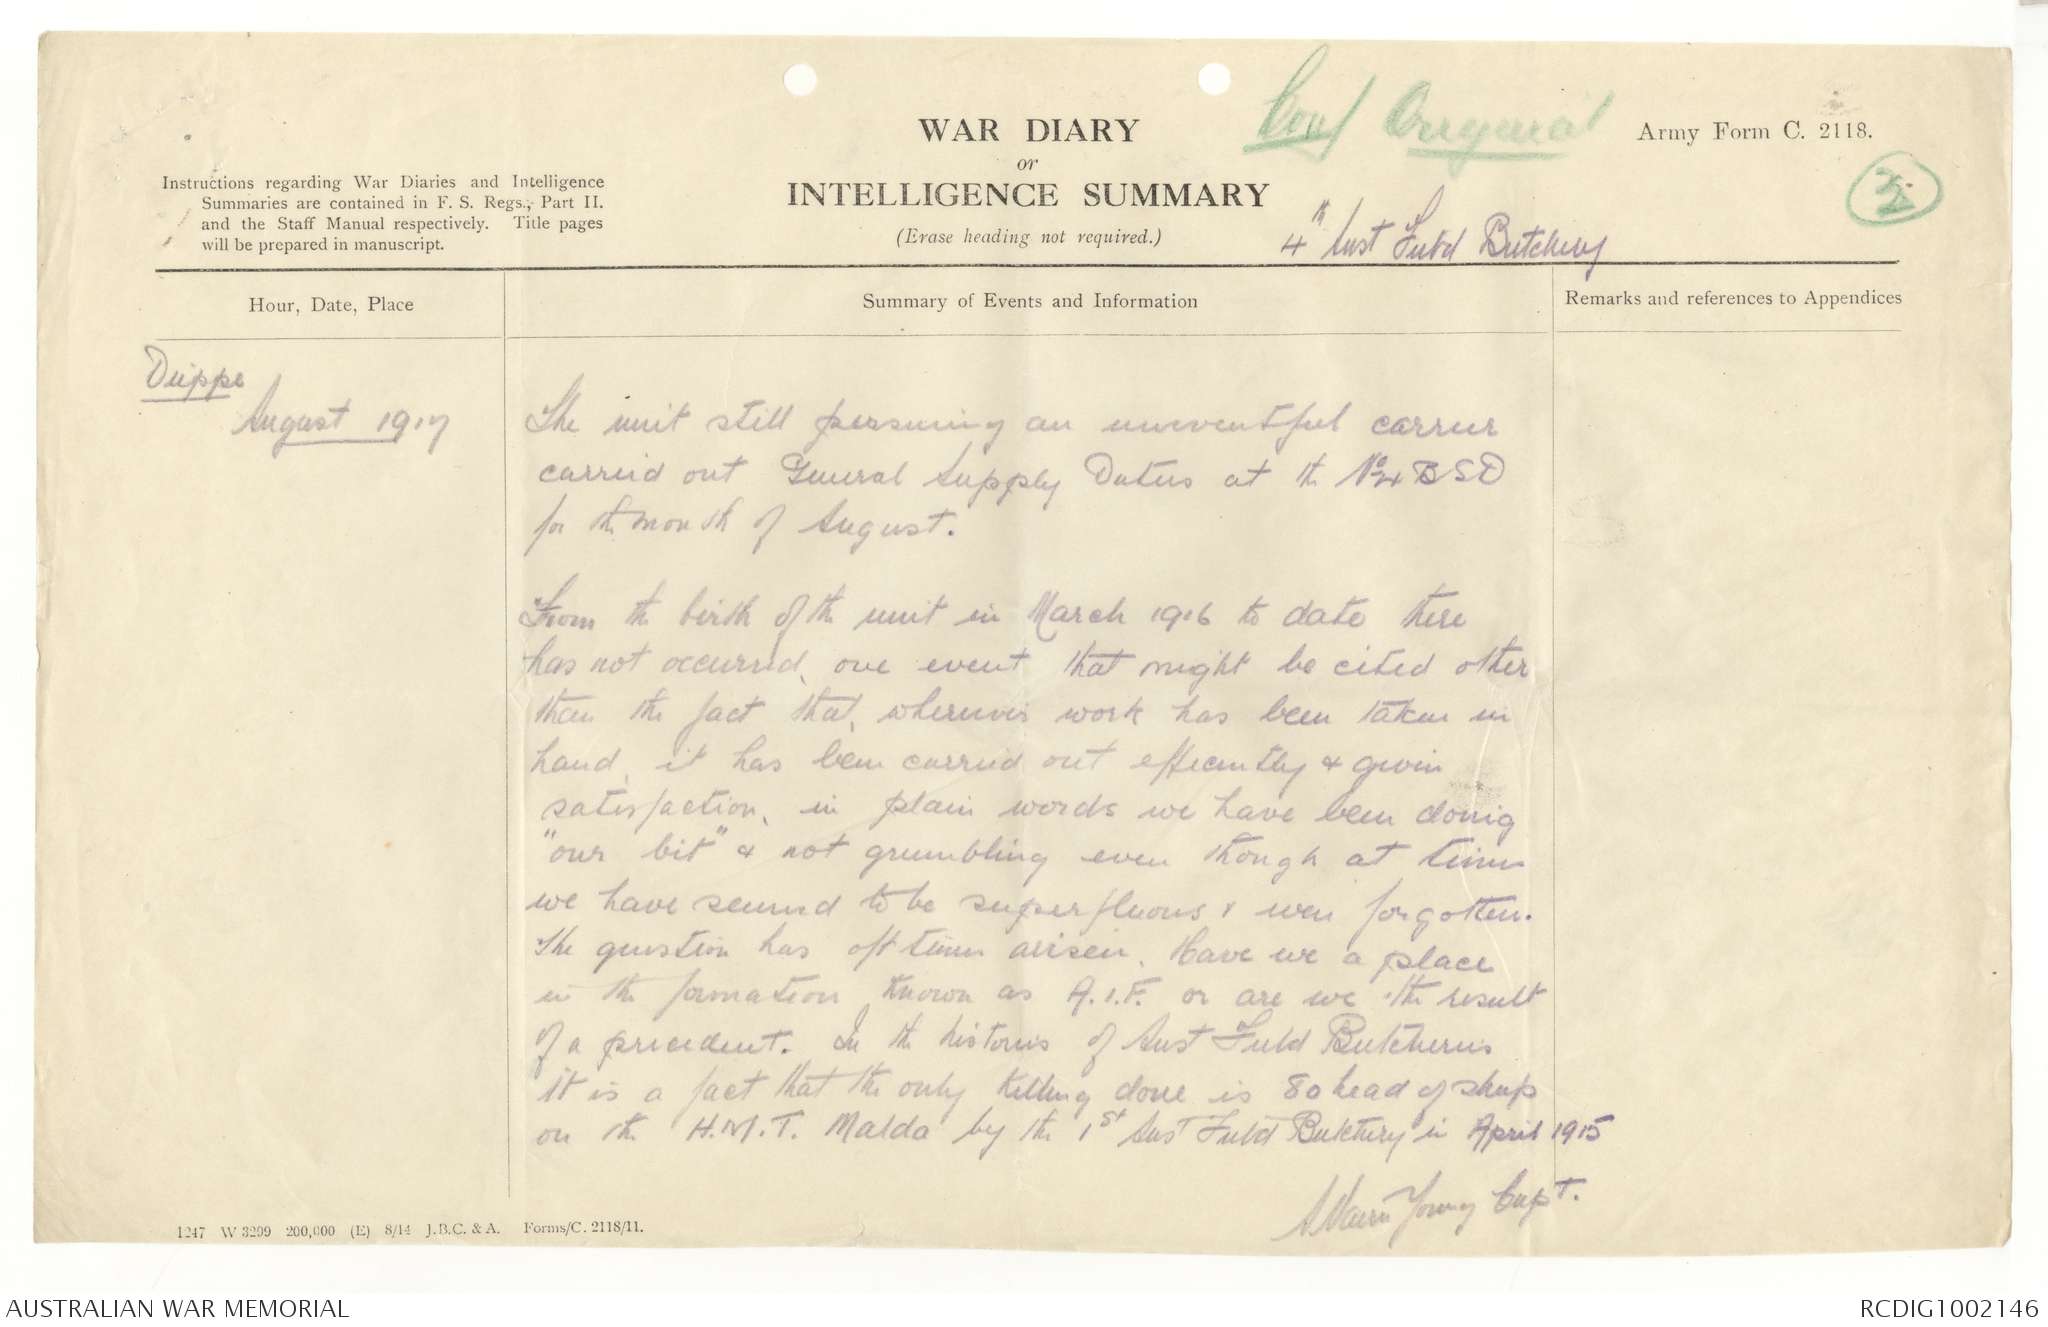 WAR DIARY
or
INTELLIGENCE SUMMARY
(Erase heading not required.)
Conf Original
Army Form C. 2118.
Instructions regarding War Diaries and Intelligence
Summaries are contained in F. S. Regs., Part II.
and the Staff Manual respectively. Title pages
will be prepared in manuscript.
4th Aust Field Butchery
Hour, Date, Place
Summary of Events and Information
Remarks and references to Appendices
Dieppe
August 1917
The unit still persuing an uneventful carreer
carried out General Supply Duties at the No 4 BSD
for the month of August.
From the birth of the unit in March 1916 to date there
has not occurred, one event that might be cited other
than the fact that, wherever work has been taken in
hand, it has been carried out efficently & given
satisfaction, in plain words we have been doing
"our bit" & not grumbling even though at times
we have seemed to be superfluous & even forgotten.
The question has oft times arisen, Have we a place
in the formation known as A.I.F. or are we the result
of a precedent. In the histories of Aust Field Butcheries
it is a fact that the only killing done is 80 head of sheep
on the H.M.T. Malda by the 1st Aust Field Butchery in April 1915
Young Capt.
1247 W 3299 200,000 (E) 8/14 J.B.C. & A. Forms/C. 2118/11.
AUSTRALIAN WAR MEMORIAL
RCDIG1002146